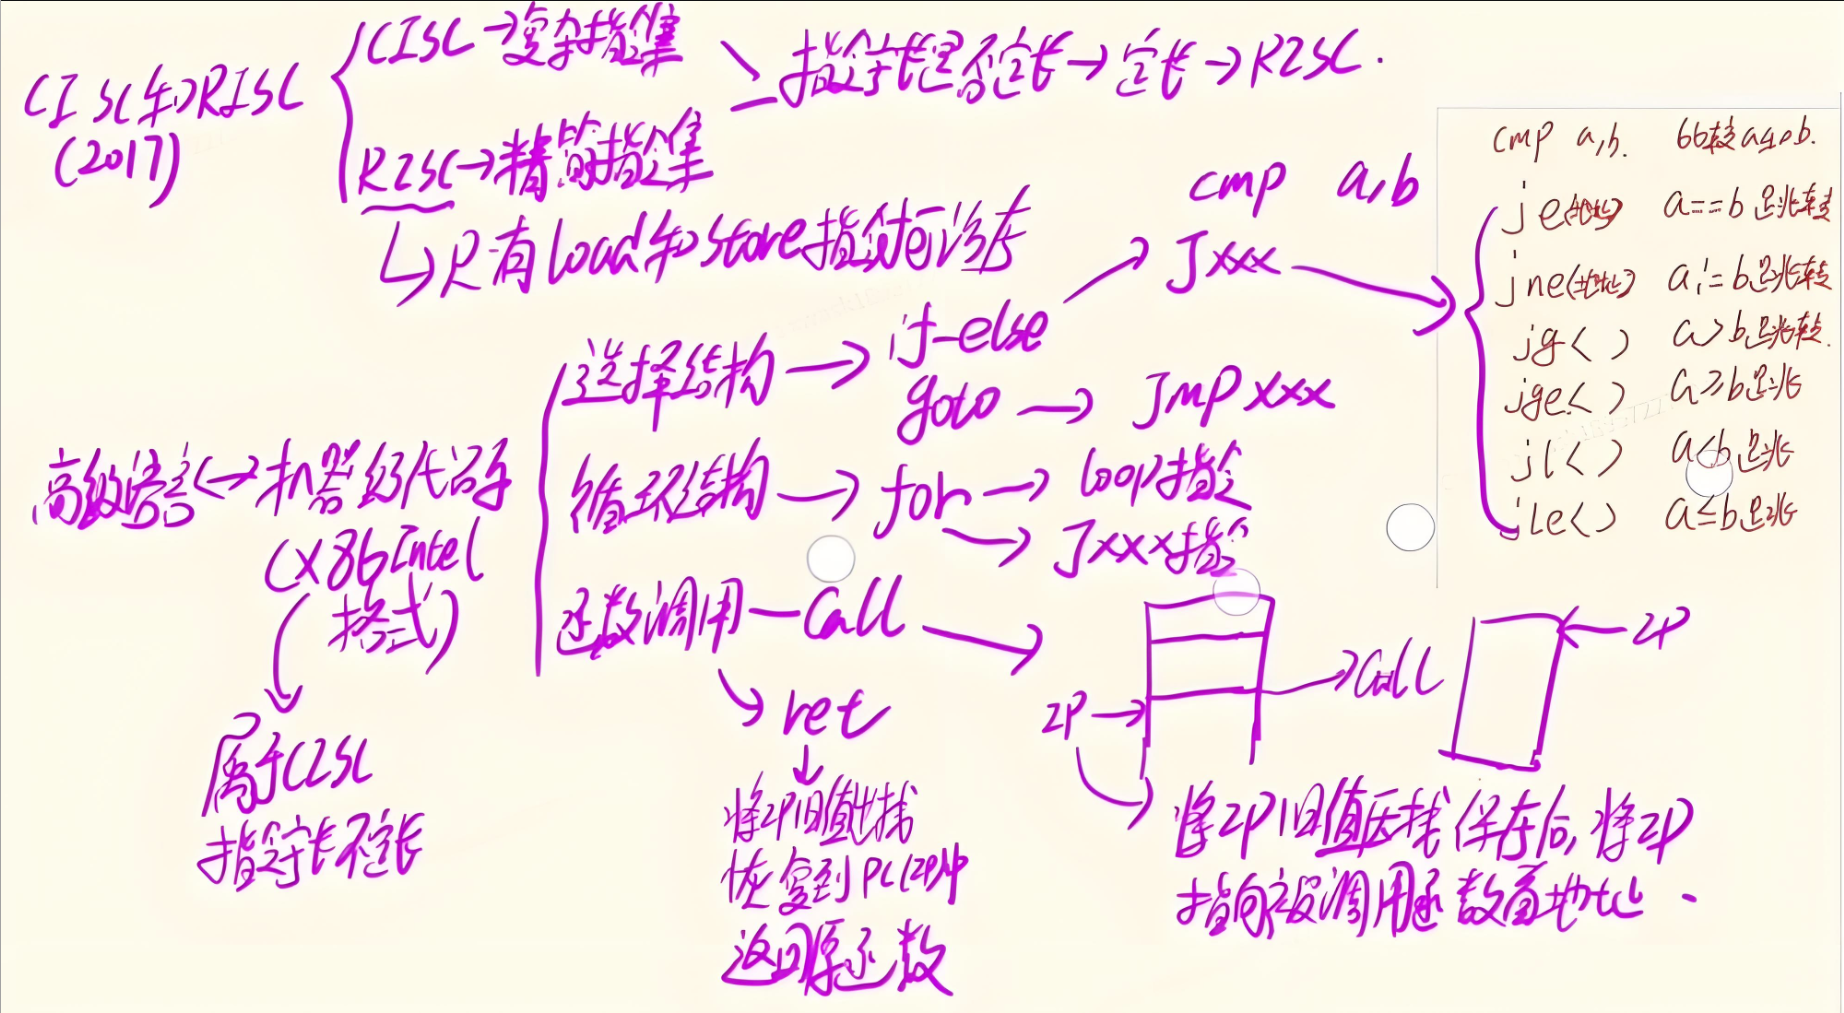 CISC和RISC
(2017)
CISC→复杂指令集
RISC→精简指令集
指令字长是否定长→定长→RISC.
只有load和store指令可访存
cmp a,b
Jxxx
cmp a,b. 比较a与b.
je(地址) a==b是跳转
jne(地址) a!=b是跳转
jg< > a>b是跳转.
jge< > a≥b是跳
jl< > a<b是跳
jle< > a≤b是跳
高级语言<→机器级代码
(X86Intel
格式)
属于CISC
指令字长不定长
选择结构→if-else
goto→Jmp xxx
循环结构→for→loop指令
→Jxxx指令
函数调用—Call
ret
将IP旧值出栈
恢复到PC(IP)中
返回原函数
IP→
→Call
←IP
将IP旧值压栈保存后,将IP
指向被调用函数首地址.